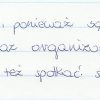 , ponieważ są
az organiza
też spotkać s